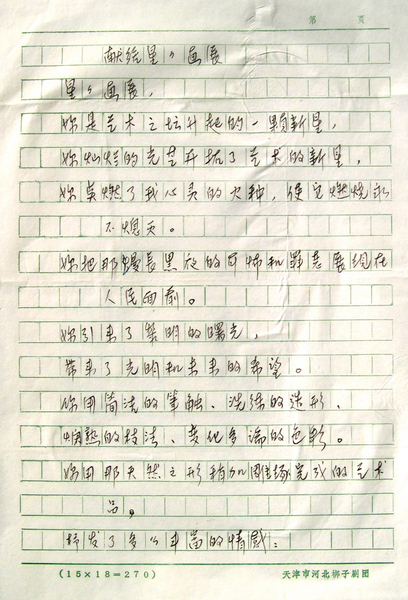 第 页
献给星々画展
星々画展，
你是艺术之坛升起的一颗新星，
你灿烂的光芒开拓了艺术的新星，
你点燃了我心灵的火种，使它燃烧永
不熄灭。
你把那漫长黑夜的可怖和罪恶展现在
人民面前。
你引来了黎明的曙光，
带来了光明和未来的希望。
你用简洁的笔触、洗练的造形、
娴熟的技法、变化多端的色彩。
你用那天然之形稍加雕琢完成的艺术
品，
抒发了多么丰富的情感：
(15×18=270)
天津市河北梆子剧团